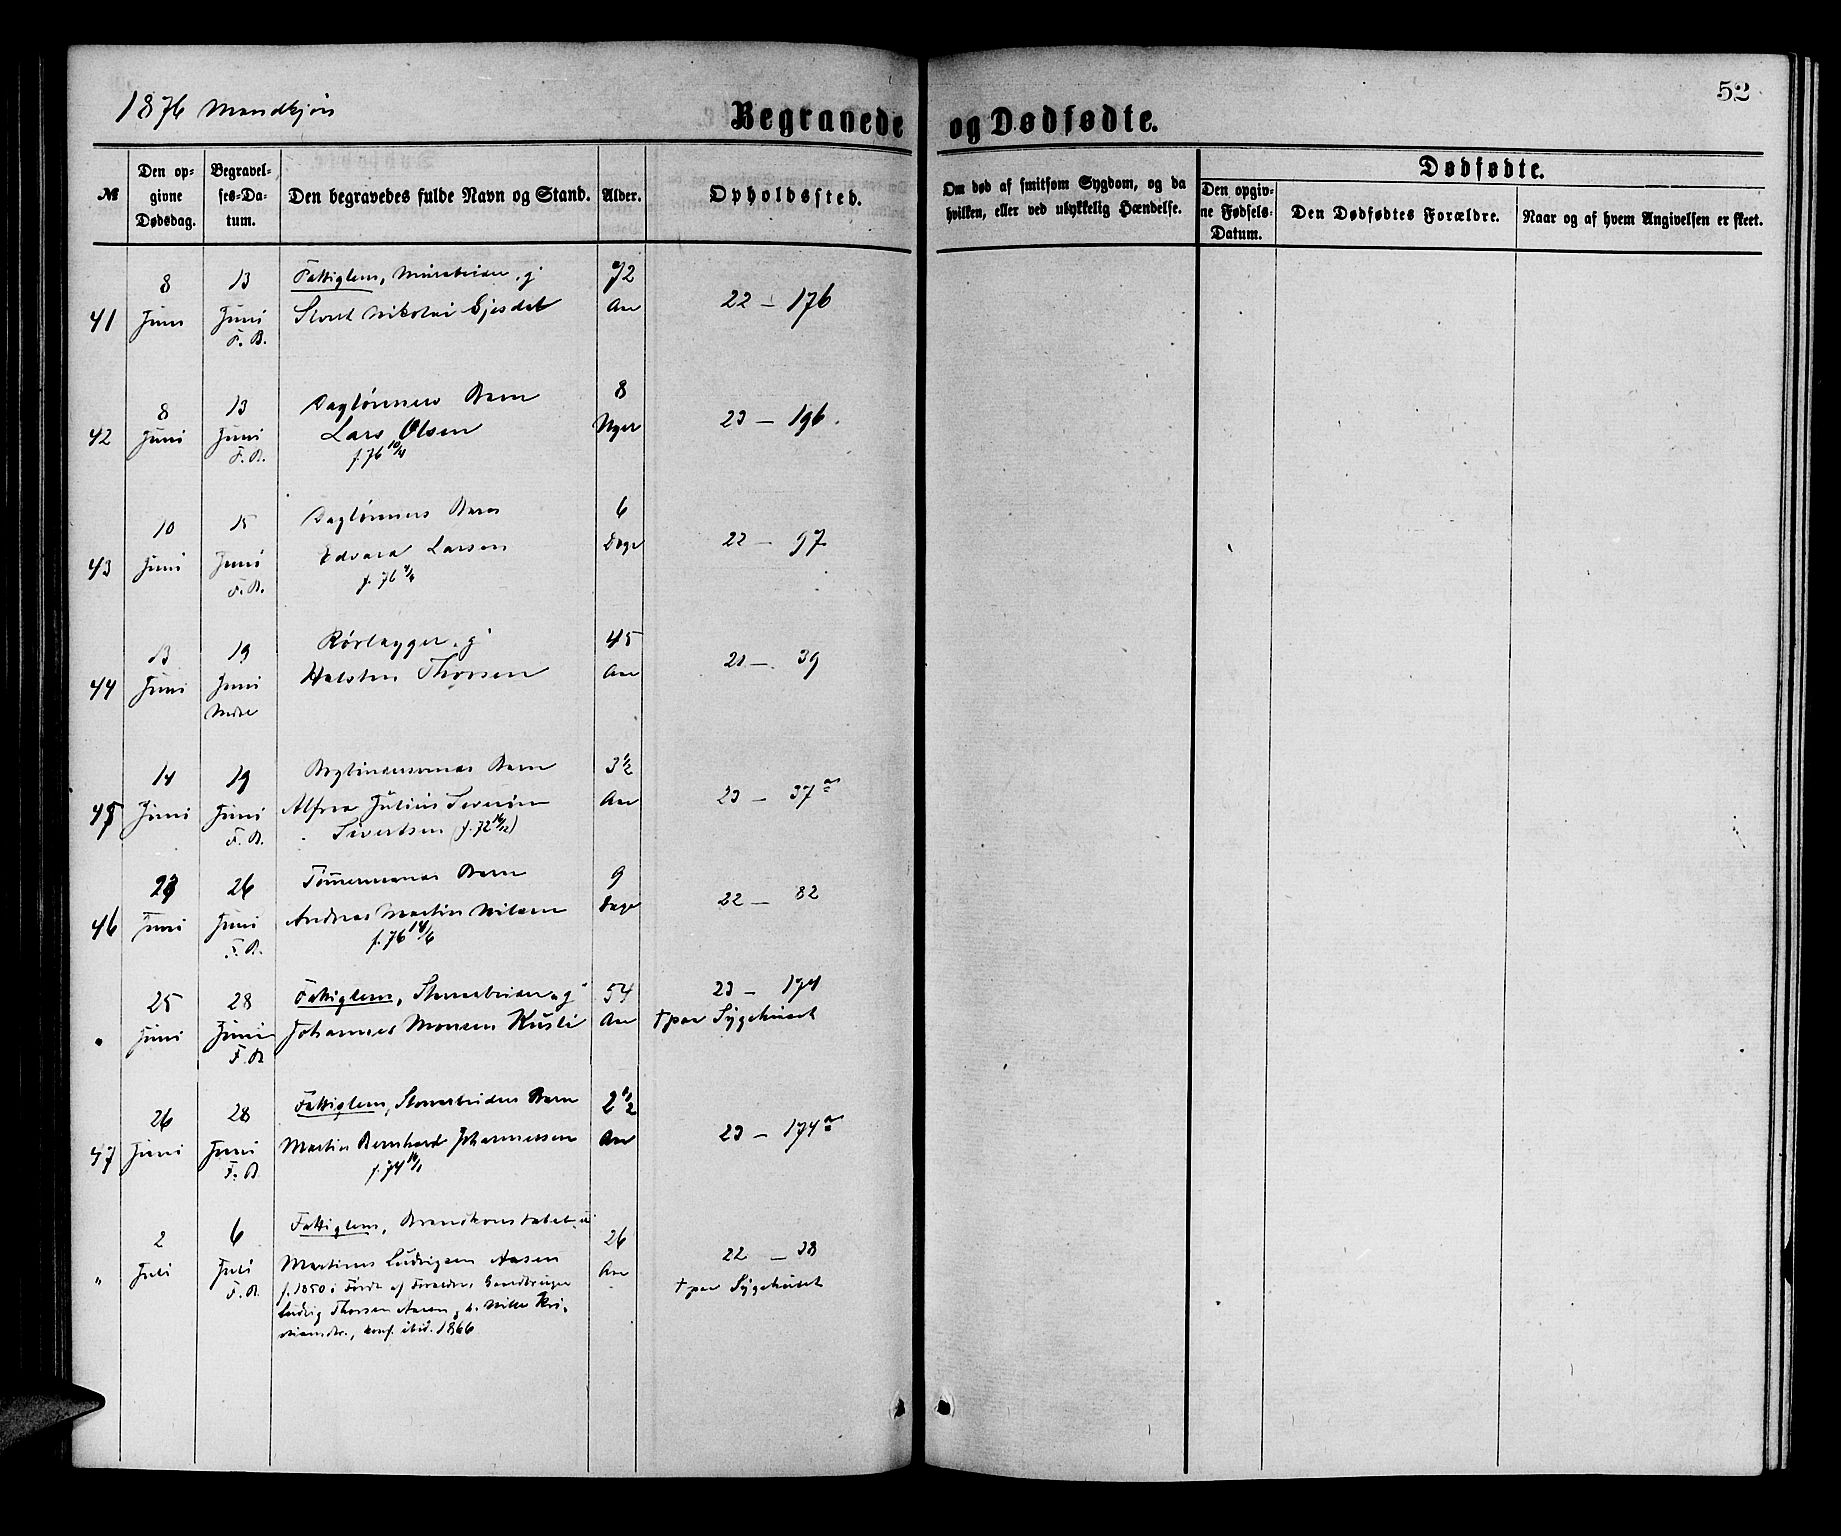 1876 Mandkjøn
52
Begravede og Dødfødte.
№
Den opgivne Dødsdag.
Begravelses-Datum.
Den begravedes fulde Navn og Stand.
Alder.
Opholdssted.
Om død af smitsom Sygdom, og da hvilken, eller ved ulykkelig Hændelse.
Dødfødte.
Den opgivne Fødsels-Datum.
Den Dødfødtes Forældre.
Naar og af hvem Angivelsen er skeet.
41 8 Juni 13 Juni F. B. Fattiglem, g
Nikolai 72 Aar 22 – 176
42 8 Juni 13 Juni F. B. Daglønners Barn
Lars Olsen 8 Uger 23 – 196.
f. 76 10/4
43 10 Juni 15 Juni F. B. Daglønners Barn
Edvard Larsen 6 Dage 22 – 97
f. 76 4/6
44 13 Juni 19 Juni Rørlægger, g
Halsten Thorsen 45 Aar 21 – 39
45 14 Juni 19 Juni F. B. Barn
Alfred Julius Severin 3 1/2 Aar 23 – 37 a
Sivertsen (f. 72 16/12)
46 23 Juni 26 Juni F. B. Tømmermands Barn
Andreas Martin Nilsen 9 Dage 22 – 82
f. 76 14/6
" 25 Juni 28 Juni F. B. Fattiglem, g
Johannes Monsen Husli 54 Aar 23 – 174
† paa Sygehuset
47 26 Juni 28 Juni F. B. Fattiglem, Barn
Martin Bernhard Johannessen 2 1/2 Aar 23 – 174 a
f. 74 14/1
" 2 Juli 6 Juli F. B. Fattiglem, Brandkonstabel, u
Martinus Ludvigsen Aasen 26 Aar 22 – 38
f. 1850 i Førde af Forældre, Gaardbruger † paa Sygehuset
Ludvig Thorsen Aasen
konf. ibid. 1866